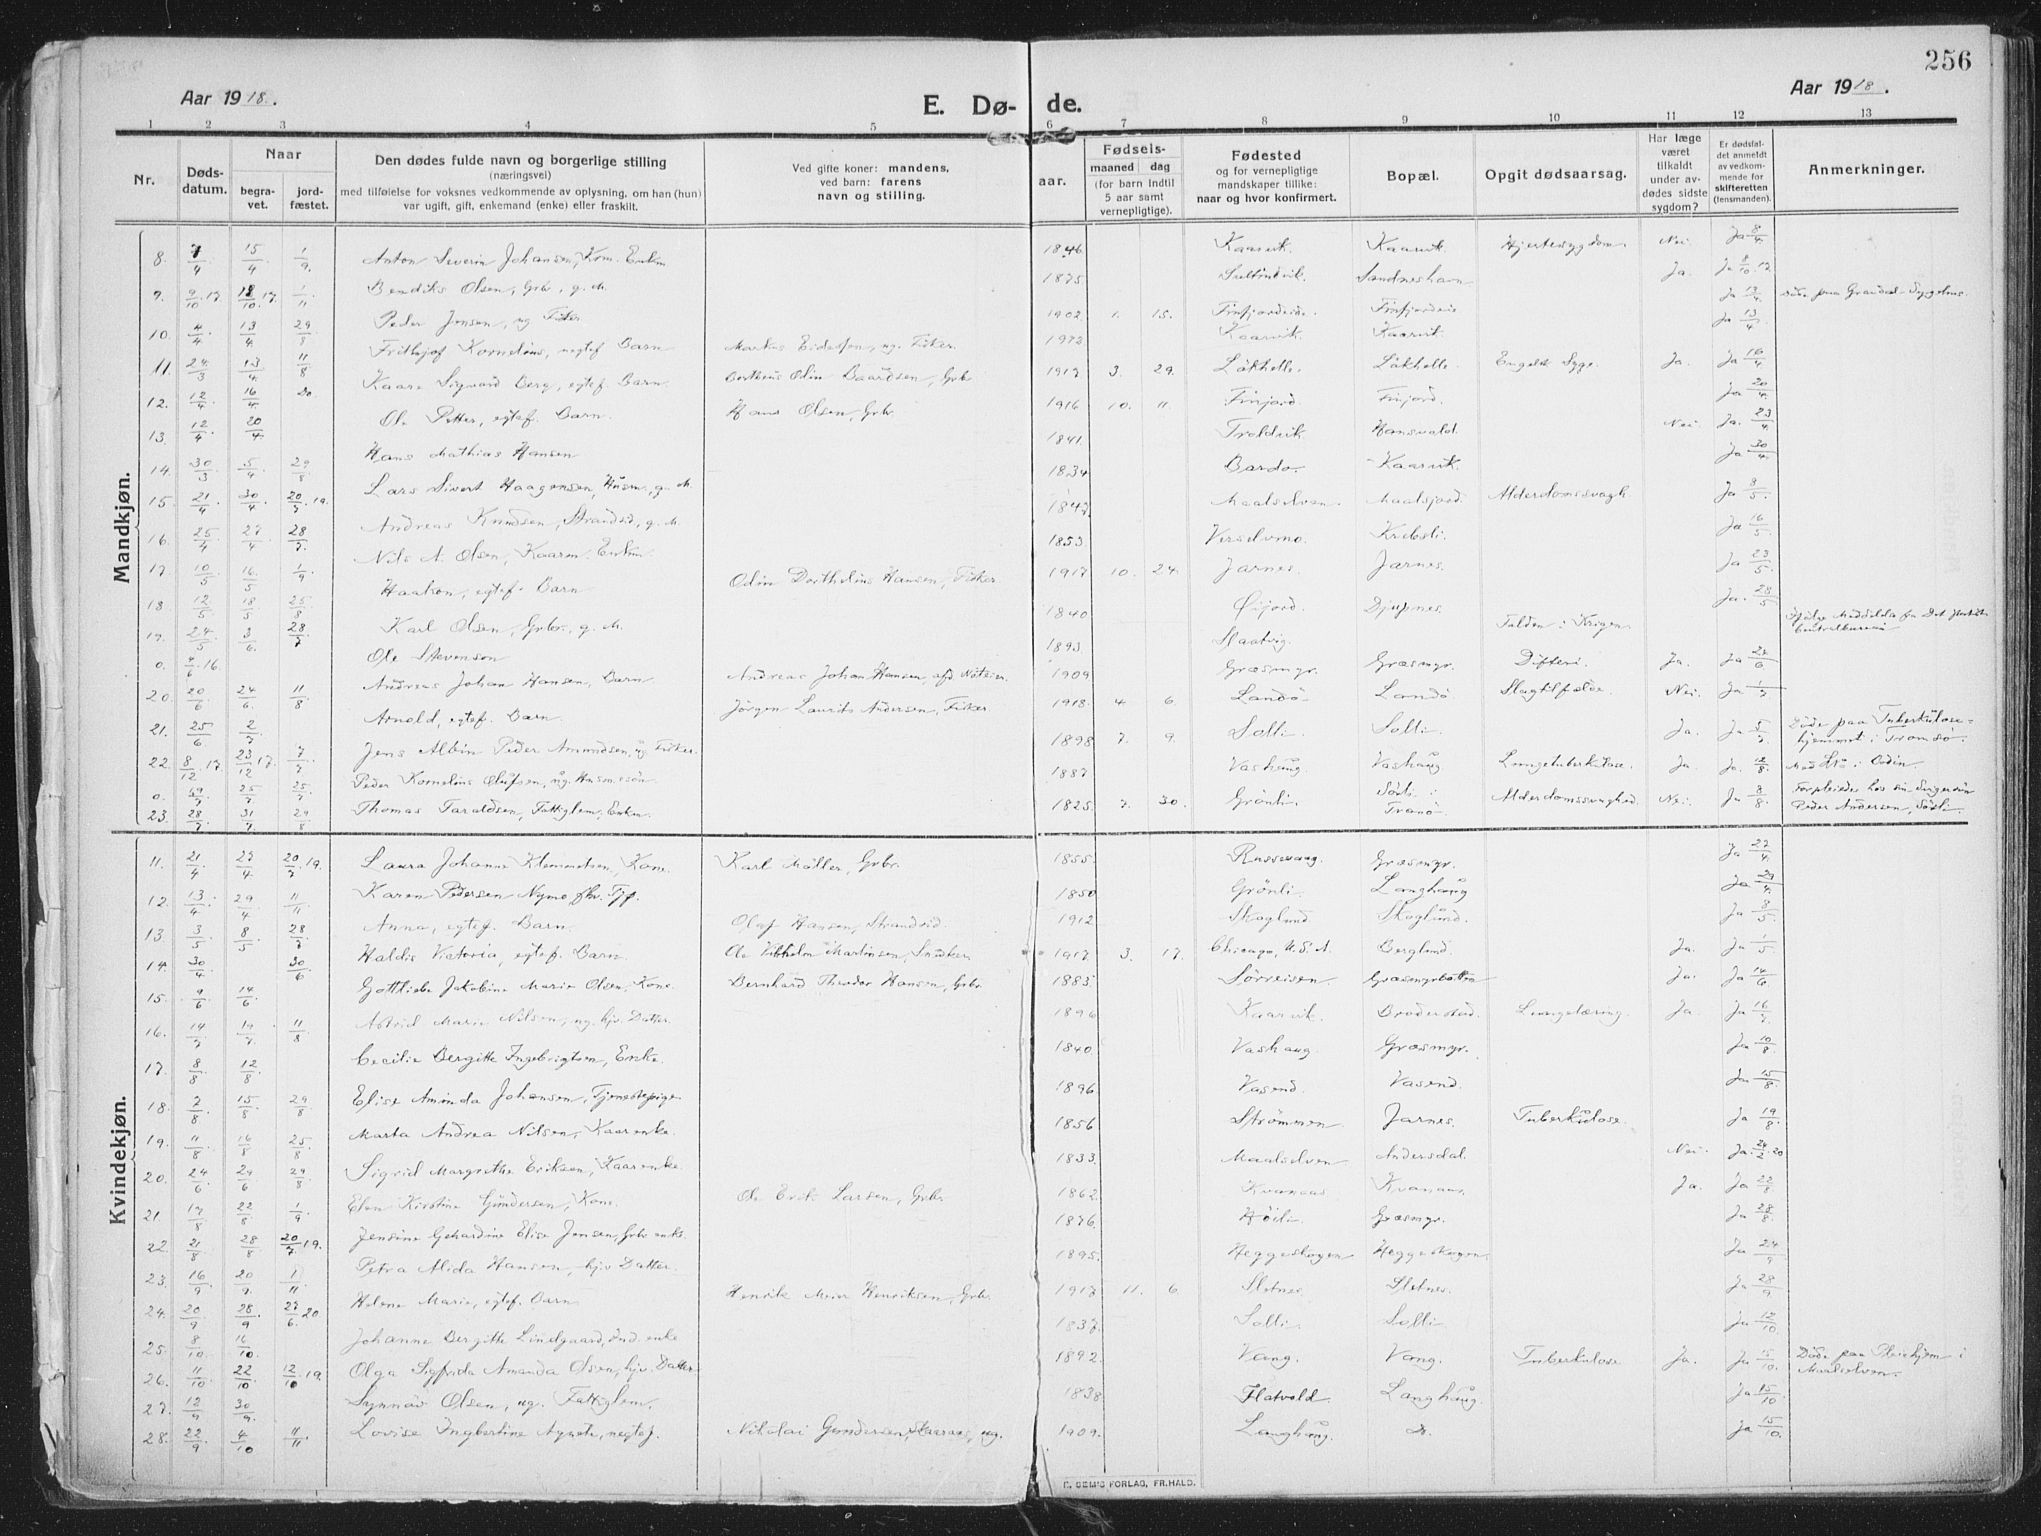 256
Aar 1918.
E. Dø-de.
Aar 1918.
1 2 3 4 5 6 7 8 9 10 11 12 13
Nr.
Døds-datum.
Naar
begra-vet.
jord-fæstet.
Den dødes fulde navn og borgerlige stilling
(næringsvei)
med tilføielse for voksnes vedkommende av oplysning, om han (hun)
var ugift, gift, enkemand (enke) eller fraskilt.
Ved gifte koner: mandens,
ved barn: farens
navn og stilling.
Fødsels-
aar.
maaned dag
(for barn indtil
5 aar samt
vernepligtige).
Fødested
og for vernepligtige
mandskaper tillike:
naar og hvor konfirmert.
Bopæl.
Opgit dødsaarsag.
Har læge
været
tilkaldt
under av-
dødes sidste
sygdom?
Er dødsfal-
det anmeldt
av vedkom-
mende for
skifteretten
(lensmanden).
Anmerkninger.
Mandkjøn.
8. 7/4 15/4 1/9 Anton Severin Johansen, Kom. Enkm. 1846 Kaarvik. Kaarvik. Hjertesygdom. Nei. Ja 8/4.
9. 9/10.17. 18/10.17. 1/11 Bendiks Olsen, Grbr., g. M. 1875 Sandneshavn Ja. Ja 8/10.17
10. 4/4 13/4 29/8 Peder Jensen, ug Fisker 1902 1. 15. Finfjordeide. Finfjordeide Ja 13/4
11. 24/3 13/4 11/8 Frithjof Kornelius, uegtef Barn Markus Fisker. Kaarvik Kaarvik. Ja 13/4
12. 12/4 16/4 Do Kaare Sigvard Berg, egtef. Barn. Bertheus Odin Baardsen, Grbr. 1917 3. 29. Låkhelle. Låkhelle. Engelsk Syge. Ja. Ja 16/4
13. 12/4 20/4 Ole Petter, egtef. Barn. Hans Olsen, Grbr. 1916 10. 11. Finjord. Finjord. Ja 20/4
14. 30/3 5/4 29/8 Hans Mathias Hansen 1841. Troldvik Hansvold. Nei Ja. 23/4
15. 21/4 30/4 20/7.19. Lars Sivert Haagensen, Husm., g. M. 1834 Bardo. Kaarvik. Ja 30/4
16. 25/4 27/4 28/7 Andreas Knudsen, Strandsid, g. M. 1847 Maalselven Maalsjord. Alderdomssvagh. Ja 8/5.
17. 10/5 16/5 1/9 Nils A. Olsen, Kaaren. Enkm. 1853 Krebsli. Ja 16/5.
18. 12/5 18/5 25/8 Haakon, egtef. Barn Odin Dorthelius Hansen, Fisker. 1917 10. 24. Jarnes. Jarnes. Ja 23/5
19. 24/5 3/6. 28/7 Karl Olsen, Grbr., g. M. 1840 Øijord. Djupnes. Ja. 28/5
0. 4/6.16 Ole Stevenson 1893. Slaatvig. Falden i Krigen.
20. 20/6 24/6. 11/8 Andreas Johan Hansen, Barn Andreas Johan Hansen, 1909 Græsmyr. Græsmyr. Difteri. Ja. Ja 24/6
21. 25/6 2/7. Arnold, egtef. Barn. Jörgen Laurits Andersen, Fisker 1918. 4 6. Landö. Landö. Slagtilfælde. Nei Ja 1/7
22. 8/12.17. 23/12.17. 7/7 Jens Albin Peder Amundsen, ug Fisker. 1898 7. 9 Solli. Solli. Ja. Ja 5/7 Døde paa Tuberkulose-hjemmet i Tromsö.
0. 25/7 25/7 Peder Kornelius Olufsen, ug. Husmssøn 1887 Vashaug. Vashaug Lungetuberkulose. Ja. Ja. 12/8.
23. 28/7 31/7 29/8 Thomas Taraldsen, Fattiglem, Enkm. 1825. 7. 30. Grönli. Sörli i Tranö Alderdomssvaghed. Nei. Ja 8/8 Forpleiedes hos sin Svigersön Peder Andersen, Sörli
Kvindekjøn.
11. 21/4 27/4 20/7.19. Laura Johanne Klementsen, Kone. Karl Möller, Grbr. 1855. Russevaag. Græsmyr. Ja 27/4.
12. 13/4. 29/4 11/11 Karen Pedersen Nymo, fhv. Tjp. 1850 Grönli. Langhaug Ja 29/4.
13. 3/5 8/5. 28/7 Anna, egtef. Barn. Olaf Hansen, Strandsid. 1912 Skoglund. Skoglund. Ja 8/5.
14. 30/4 30/6 Haldis Victoria, egtef. Barn. Ole Vilhelm Martinsen, Snedker 1917 3. 17. Chicago, U.S.A. Berglund. Ja. Ja 1/5
15. 9/6 14/6. Gottliebe Jakobine Marie Olsen, Kone. Bernhard Theodor Hansen, Grbr. 1883. Sörreisen. Græsmyrbotten Ja. Ja 14/6
16. 14/7 19/7. 11/8 Astrid Marie Nilsen, ug. hjv. Datter. 1896 Kaarvik. Broderstad. Lungelæring. Ja. Ja 16/7.
17. 8/8 12/8 Cecilie Bergitte Ingebrigtsen, Enke. 1840. Vashaug. Græsmyr. Ja 10/8
18. 7/8. 15/8 29/8 Elise Aminda Johansen, Tjenestepige 1896. Vasend. Vasend. Ja 15/8.
19. 11/8. 16/8 25/8 Marta Andrea Nilsen, Kaarenke. 1856 Strömmen Jarnes. Tuberkulose. Ja 19/8.
20. 24/6 29/6 29/8 Sigrid Margrethe Eriksen, Kaarenke. 1833. Maalselven Andersdal. Nei. Ja 24/2.20
21. 17/8 22/8. 1/9. Elen Kirstine Gundersen, Kone. Ole Erik Larsen, Grbr. 1862. Kvanaas Kvanaas. Ja. Ja 22/8
22. 21/8 28/8 20/7.19. Jensine Gehardine Elise Jensen, Grbr enke. 1876 Høili. Græsmyr. Ja 28/8.
23. 16/9 20/9. 1/11 Petra Alida Hansen, hjv Datter. 1895. Heggeskogen Heggeskogen. Ja 24/9
24. 20/9 28/9. 27/6.20. Helene Marie, egtef. Barn Henrik Meier Henriksen, Grbr. 1917 11. 6 Sletnes Sletnes. Ja 28/9
25. 8/10. 16/10. Johanne Bergitte Lindgaard, Ind. enke 1837. Solli. Solli. Ja 12/10
26. 11/10. 22/10. 12/10.19. Olga Sigfrida Amanda Olsen, hjv. Datter 1892. Vang. Vang. Tuberkulose Ja. Ja 15/10. Døde paa Pleiehjem i Maalselven.
27. 12/9 30/9. Synnöv Olsen, ug. Fattiglem. 1838 Flatvold Langhaug. Ja 15/10
28. 22/9 4/10 11/11 Lovise Ingbertine Agnete, uegtef. Nikolai Gundersen, ug. 1909. Langhaug. Ja 15/10
E. SEM'S FORLAG, FR.HALD.